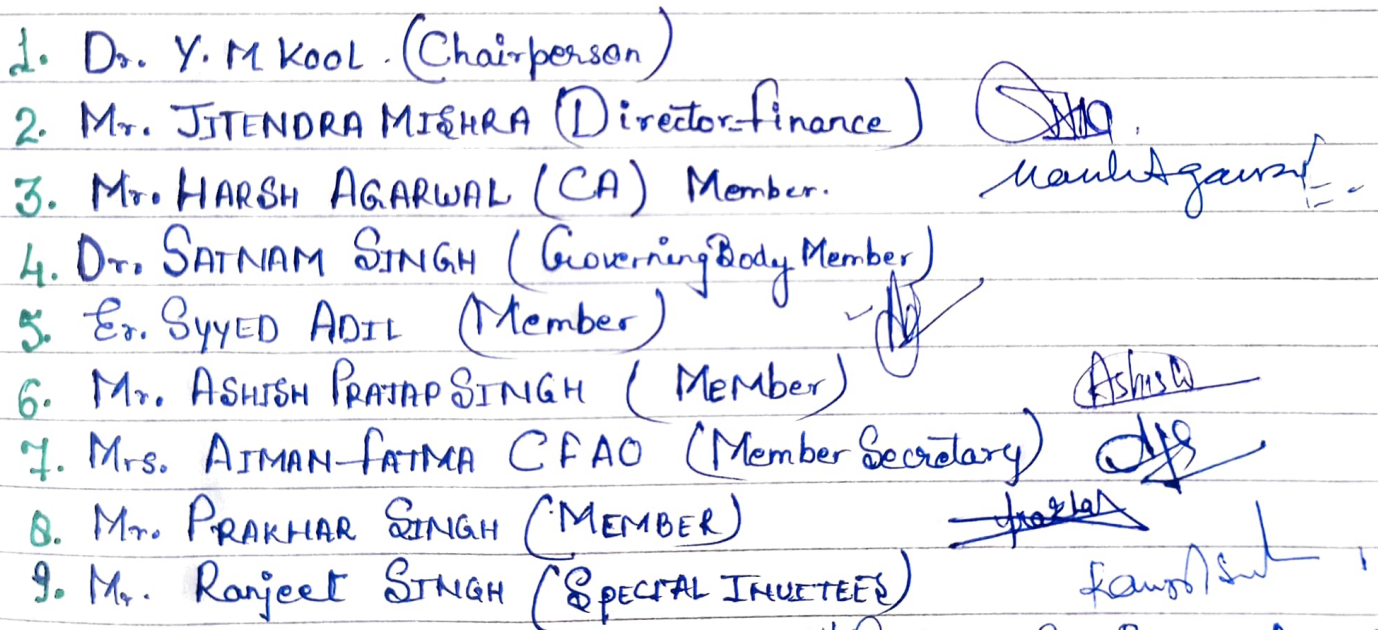 1. Dr. Y. M KOOL. (Chairperson)
2. Mr. JITENDRA MISHRA (Director-finance)
3. Mr. HARSH AGARWAL (CA) Member.
4. Dr. SATNAM SINGH (Governing Body Member)
5. Er. SYYED ADIL (Member)
6. Mr. ASHISH PRATAP SINGH (MEMber) Ashish
7. Mrs. AIMAN-FATMA CFAO (Member Secretary)
8. Mr. PRAKHAR SINGH (MEMBER)
9. Mr. Ranjeet SINGH (SPECIAL INVITEES)